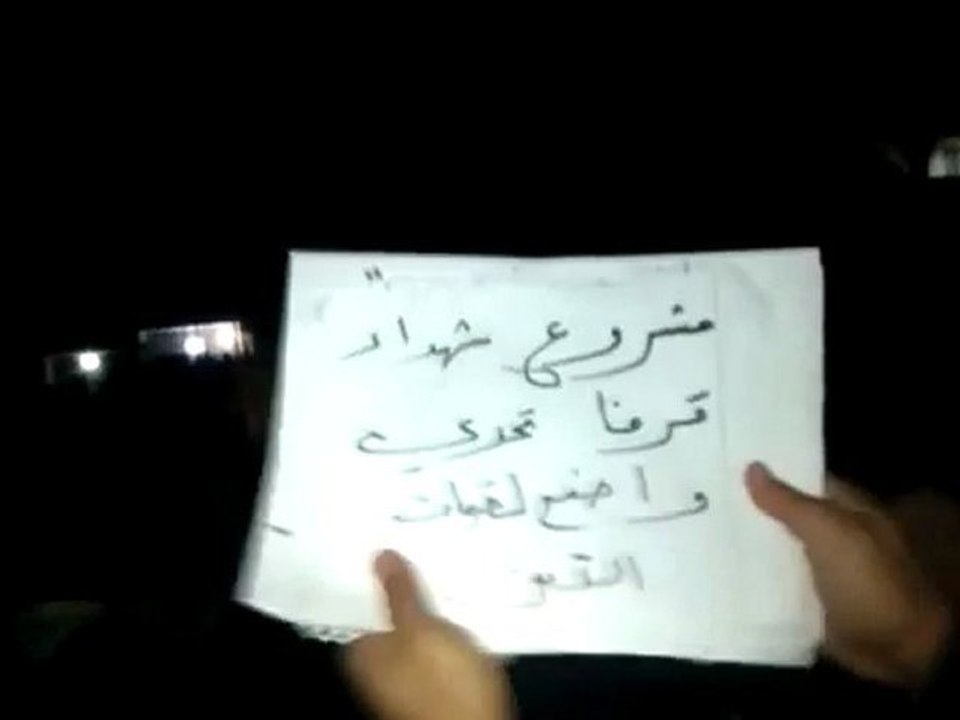 مشروع شهداء
قرفنا تحدي
واضع لقبات